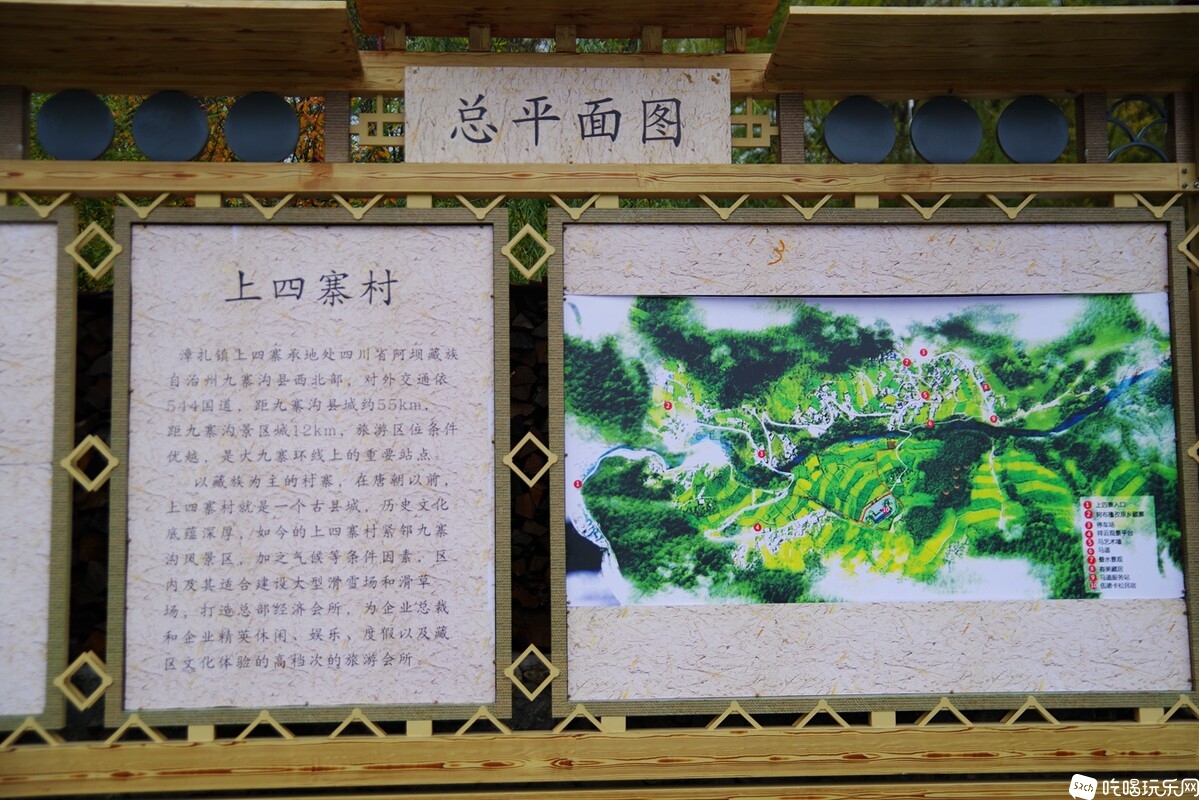 总平面图
上四寨村
漳扎镇上四寨承地处四川省阿坝藏族
自治州九寨沟县西北部，对外交通依
544国道，距九寨沟县城约55km，
距九寨沟景区城12km，旅游区位条件
优越，是大九寨环线上的重要站点。
以藏族为主的村寨，在唐朝以前，
上四寨村就是一个古县城，历史文化
底蕴深厚，如今的上四寨村紧邻九寨
沟风景区，加之气候等条件因素，区
内及其适合建设大型滑雪场和滑草
场，打造总部经济会所，为企业总裁
和企业精英休闲、娱乐、度假以及藏
区文化体验的高档次的旅游会所。
1 上四寨入口
3 停车站
4 祥云观景平台
5 马艺术墙
6 马道
7 叠水景观
9 马道服务站
吃喝玩乐网